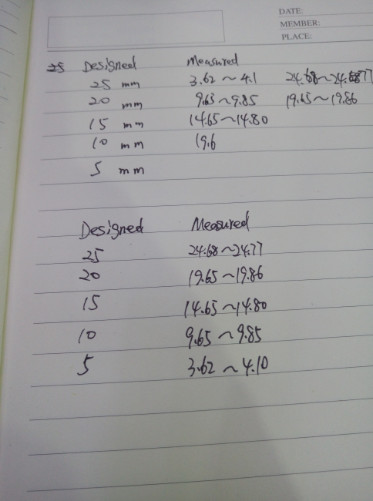 DATE:
MEMBER:
PLACE:
25 Designed Measured
25 mm 3.62 ~ 4.1 24.68~24.77
20 mm 9.65~9.85 19.65~19.86
15 mm 14.65~14.80
10 mm 19.6
5 mm
Designed Measured
25 24.68~24.77
20 19.65~19.86
15 14.65~14.80
10 9.65~9.85
5 3.62 ~ 4.10